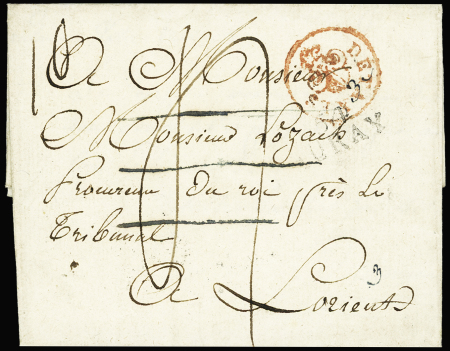 A Monsieur
Monsieur Lozach
Procureur du roi près Le
Tribunal
A Lorient
3